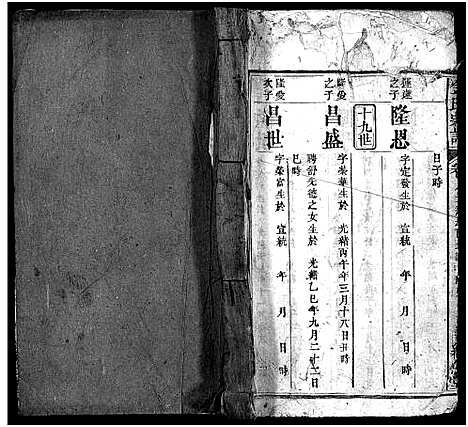 日子時
之子
隆恩
字定發生於宣統年月日時
十九世
隆愛
之子
昌盛
字榮華生於光緒丙午年三月十八日丑時
聘舒先德之女生於光緒乙巳年九月二十二日
巳時
隆愛
次子
昌世
字榮富生於宣統年月日時